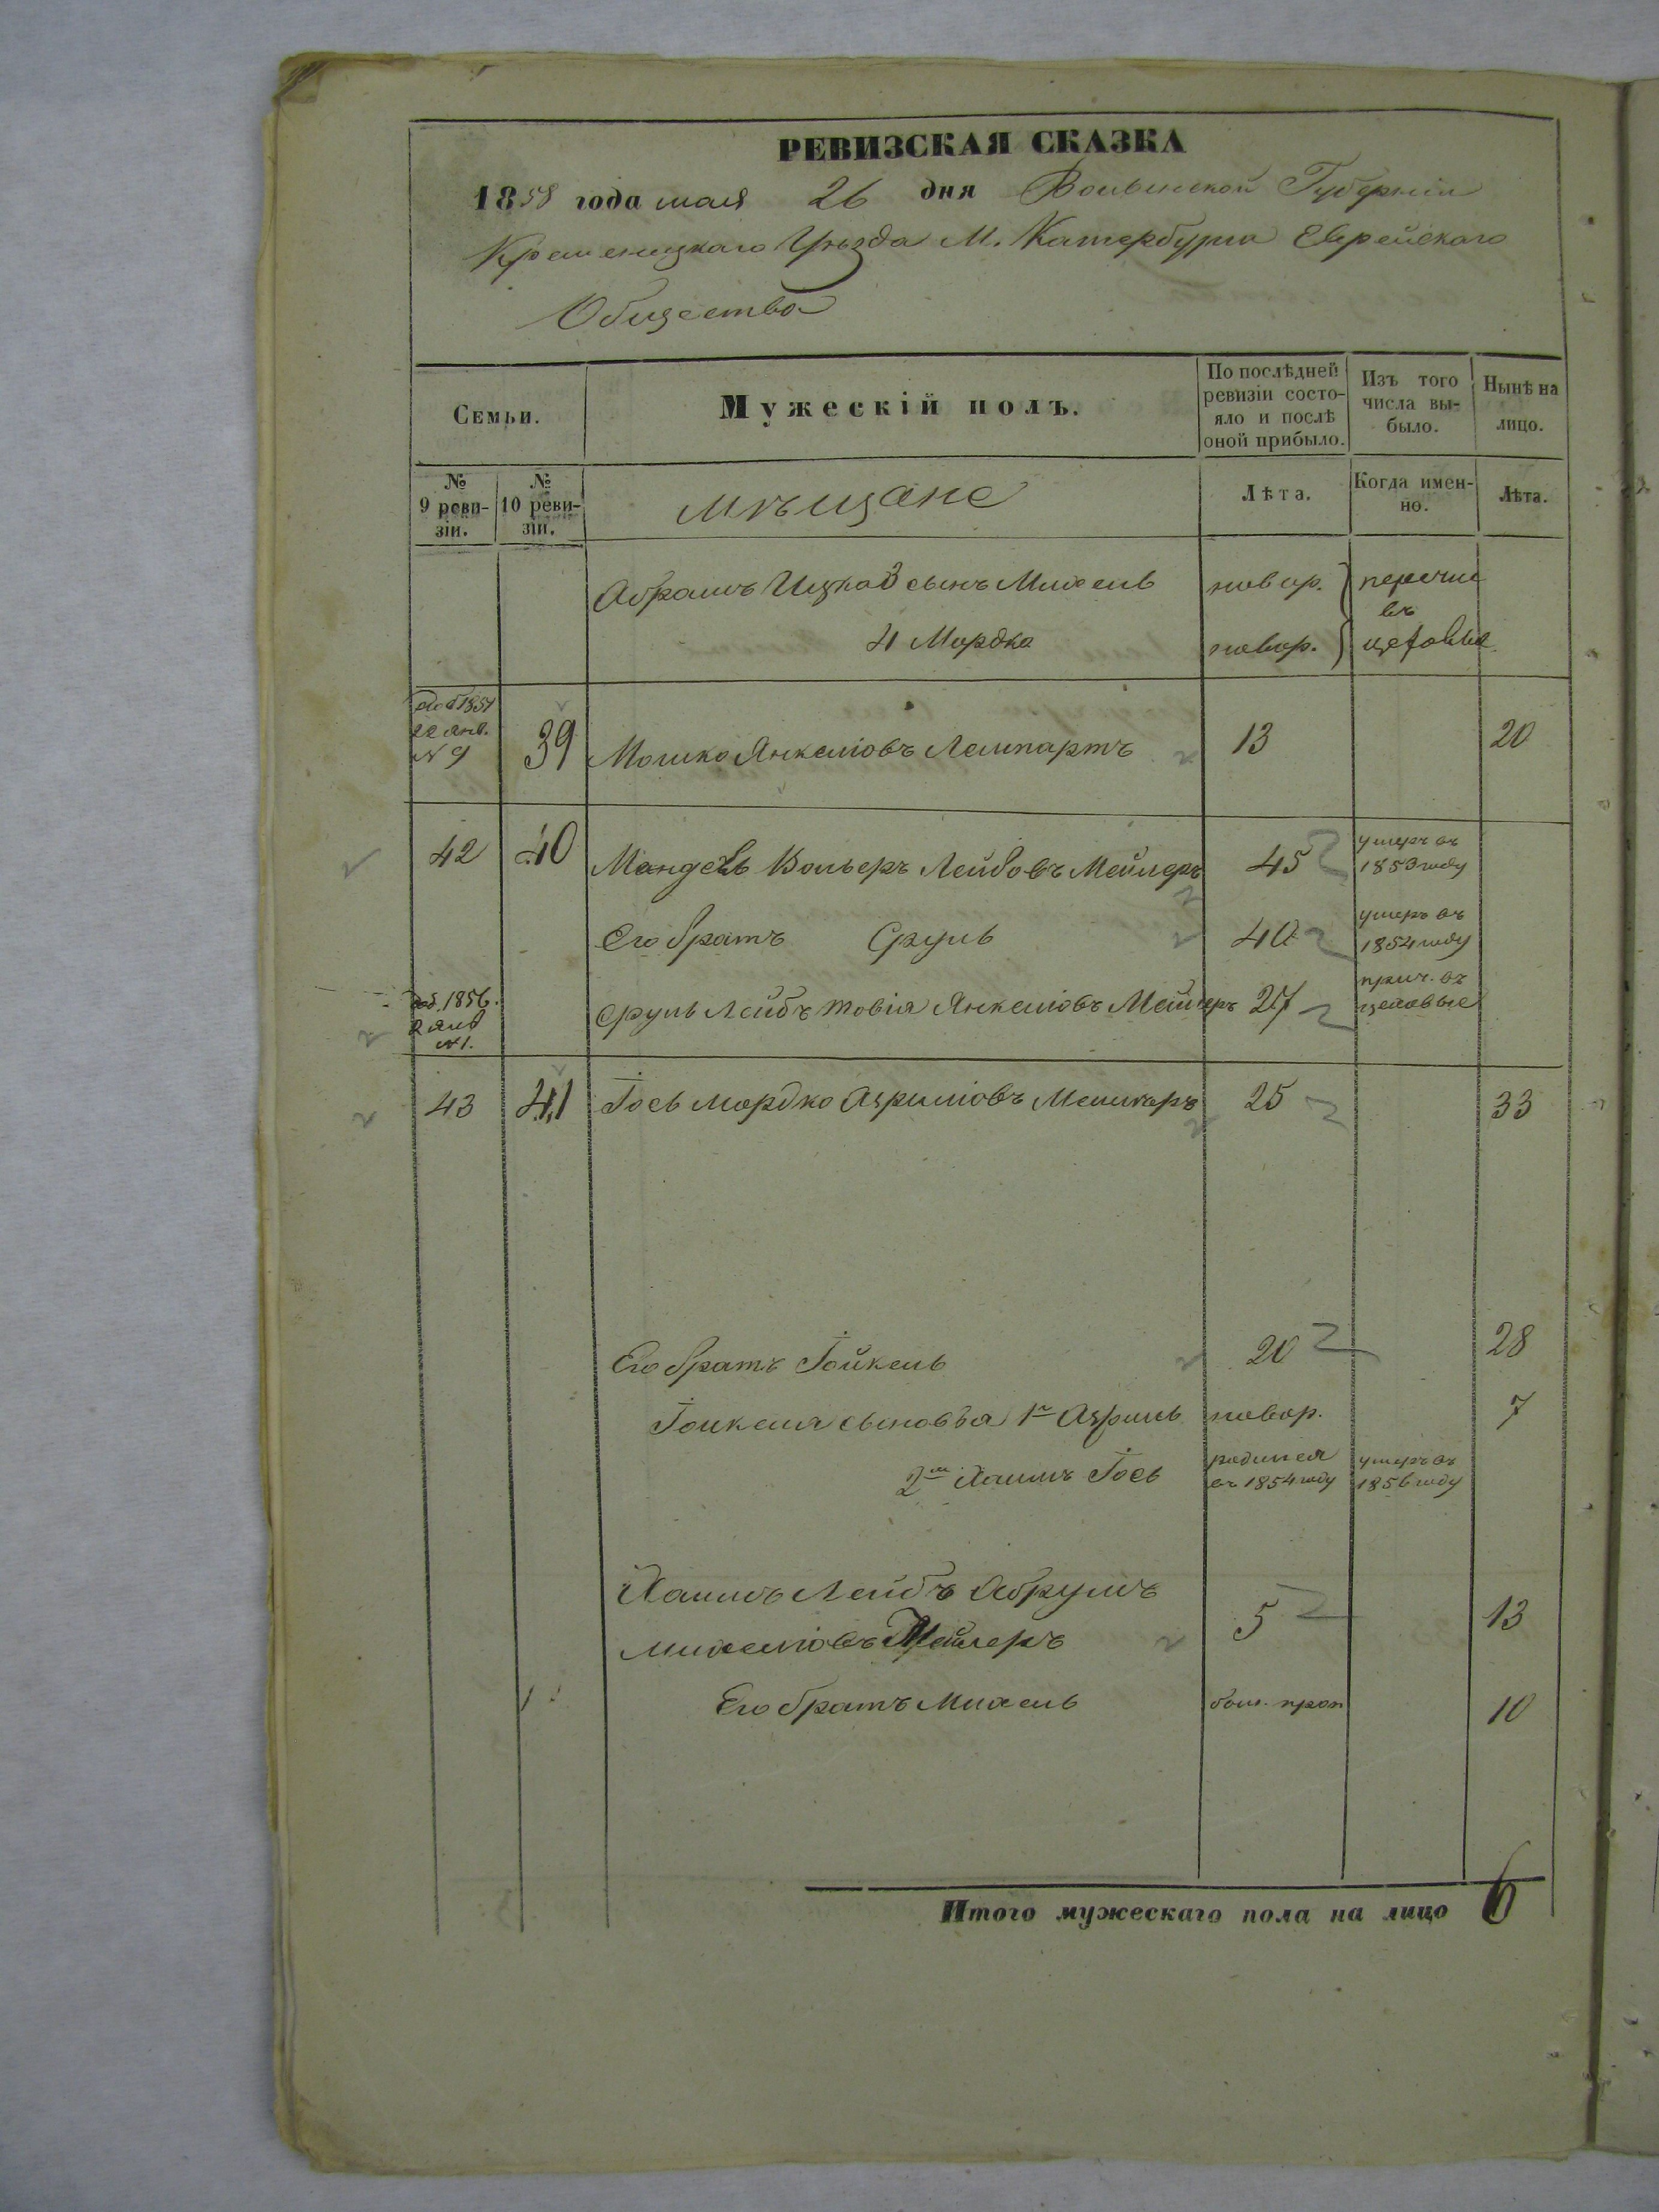 РЕВИЗСКАЯ СКАЗКА
1858 года мая 26 дня Волынской Губерніи
Кременецкаго Уѣзда М. Катербурга Еврейскаго
Общества
Семьи.
Мужескій полъ.
По послѣдней ревизіи состо-яло и послѣ оной прибыло.
Изъ того числа вы-было.
Нынѣ на лицо.
№ 9 реви-зіи.
№ 10 реви-зіи.
мѣщане
Лѣта.
Когда имен-но.
Лѣта.
Абрамъ Ицка 3 сынъ Михель новор. перечис въ
4 Мордко новор. цеховые
доб 1854 22 янв. № 9 39 Мошко Янкеліовъ Лемпартъ 13 20
42 40 Мандель Вольеръ Лейбовъ Мейлеръ 45 умеръ въ 1853 году
Его братъ Сруль 40 умеръ въ 1854 году
доб. 1856. 2 янв № 1. Сруль Лейбъ Товія Янкеліовъ Мейлеръ 27 прич. въ цеховые
43 41 Іось Мордко Азриліовъ Мейлеръ 25 33
Его братъ Іойкель 20 28
Іойкеля сыновья 1й Азриль новор. 7
2й Хаимъ Іось родился въ 1854 году умеръ въ 1856 году
Хаимъ Лейбъ Абрумъ
Михеліовъ Мейлеръ 5 13
Его братъ Михель был. проп 10
Итого мужескаго пола на лицо 6